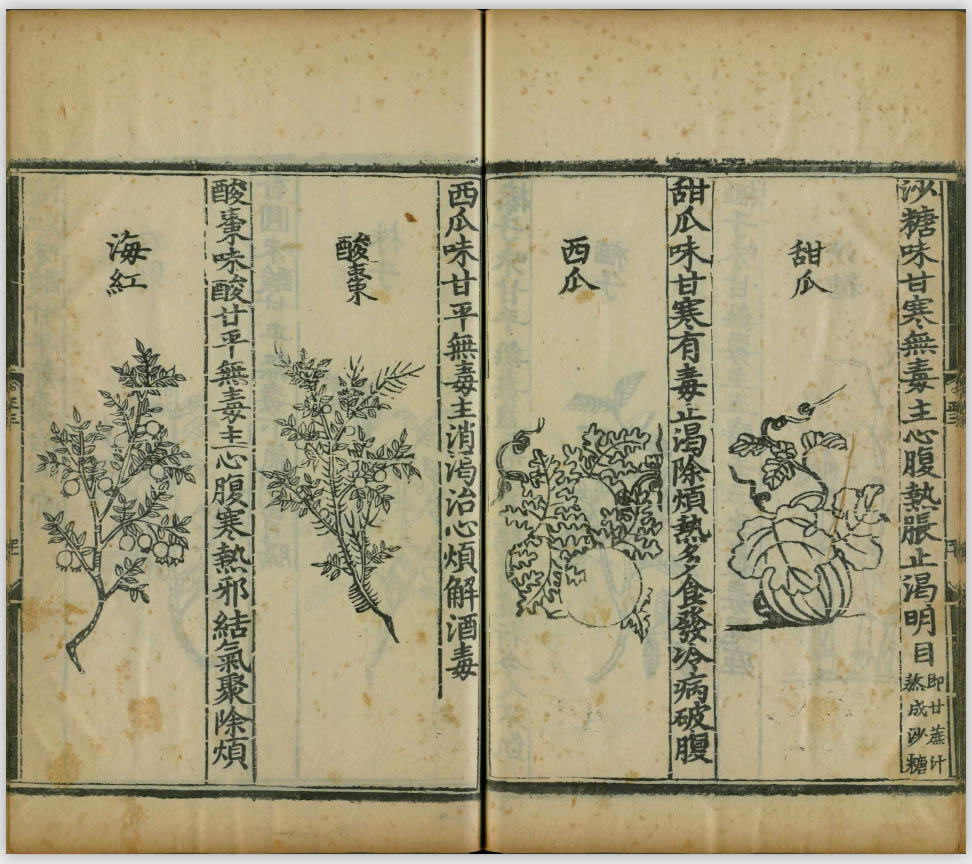 沙糖味甘寒無毒主心腹熱脹止渴明目即甘蔗汁熬成沙糖
甜瓜
甜瓜味甘寒有毒止渴除煩熱多食發冷病破腹
西瓜
西瓜味甘平無毒主消渴治心煩解酒毒
酸棗
酸棗味酸甘平無毒主心腹寒熱邪結氣聚除煩
海紅